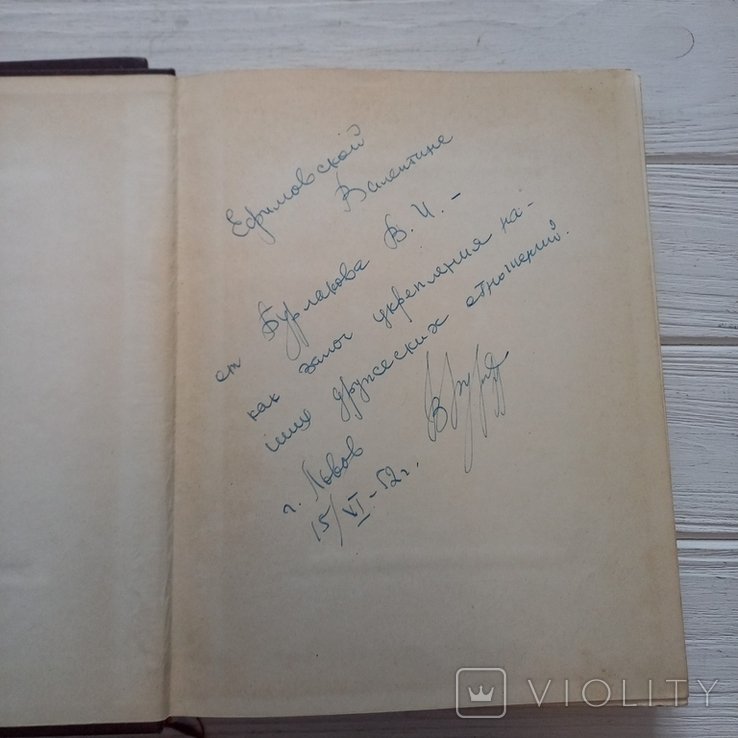 Ефимовской
Валентине
от Бурлакова В. И. –
как залог укрепления на-
ших дружеских отношений.
г. Львов
15/VI – 52 г.
VIOLITY